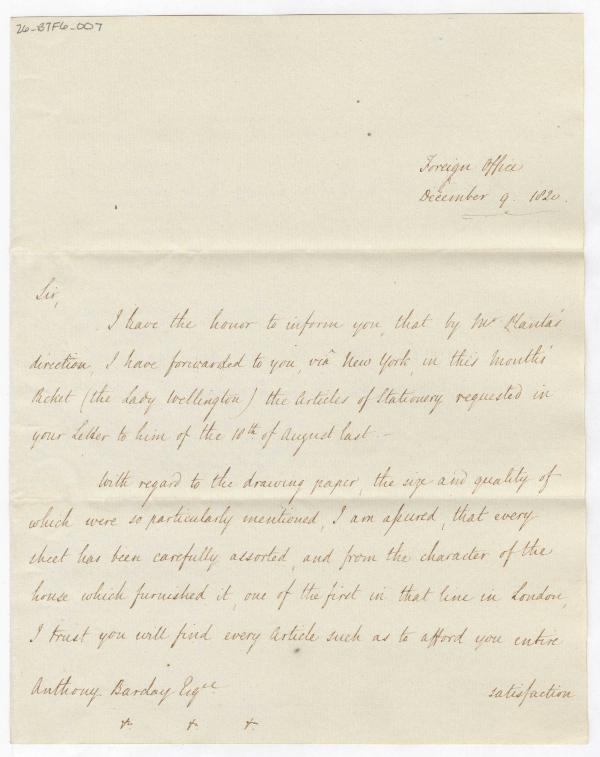 26-B7F6-007
Foreign Office
December 9. 1820.
Sir,
I have the honor to inform you, that by Mr Planta's
direction, I have forwarded to you, viâ New York, in this Month's
Packet (the Lady Wellington) the Articles of Stationery requested in
your Letter to him of the 10th of August last.—
With regard to the drawing paper, the size and quality of
which were so particularly mentioned, I am assured, that every
sheet has been carefully assorted, and from the character of the
house which furnished it, one of the first in that line in London,
I trust you will find every Article such as to afford you entire
Anthony Barclay Esqre satisfaction
&. &. &.